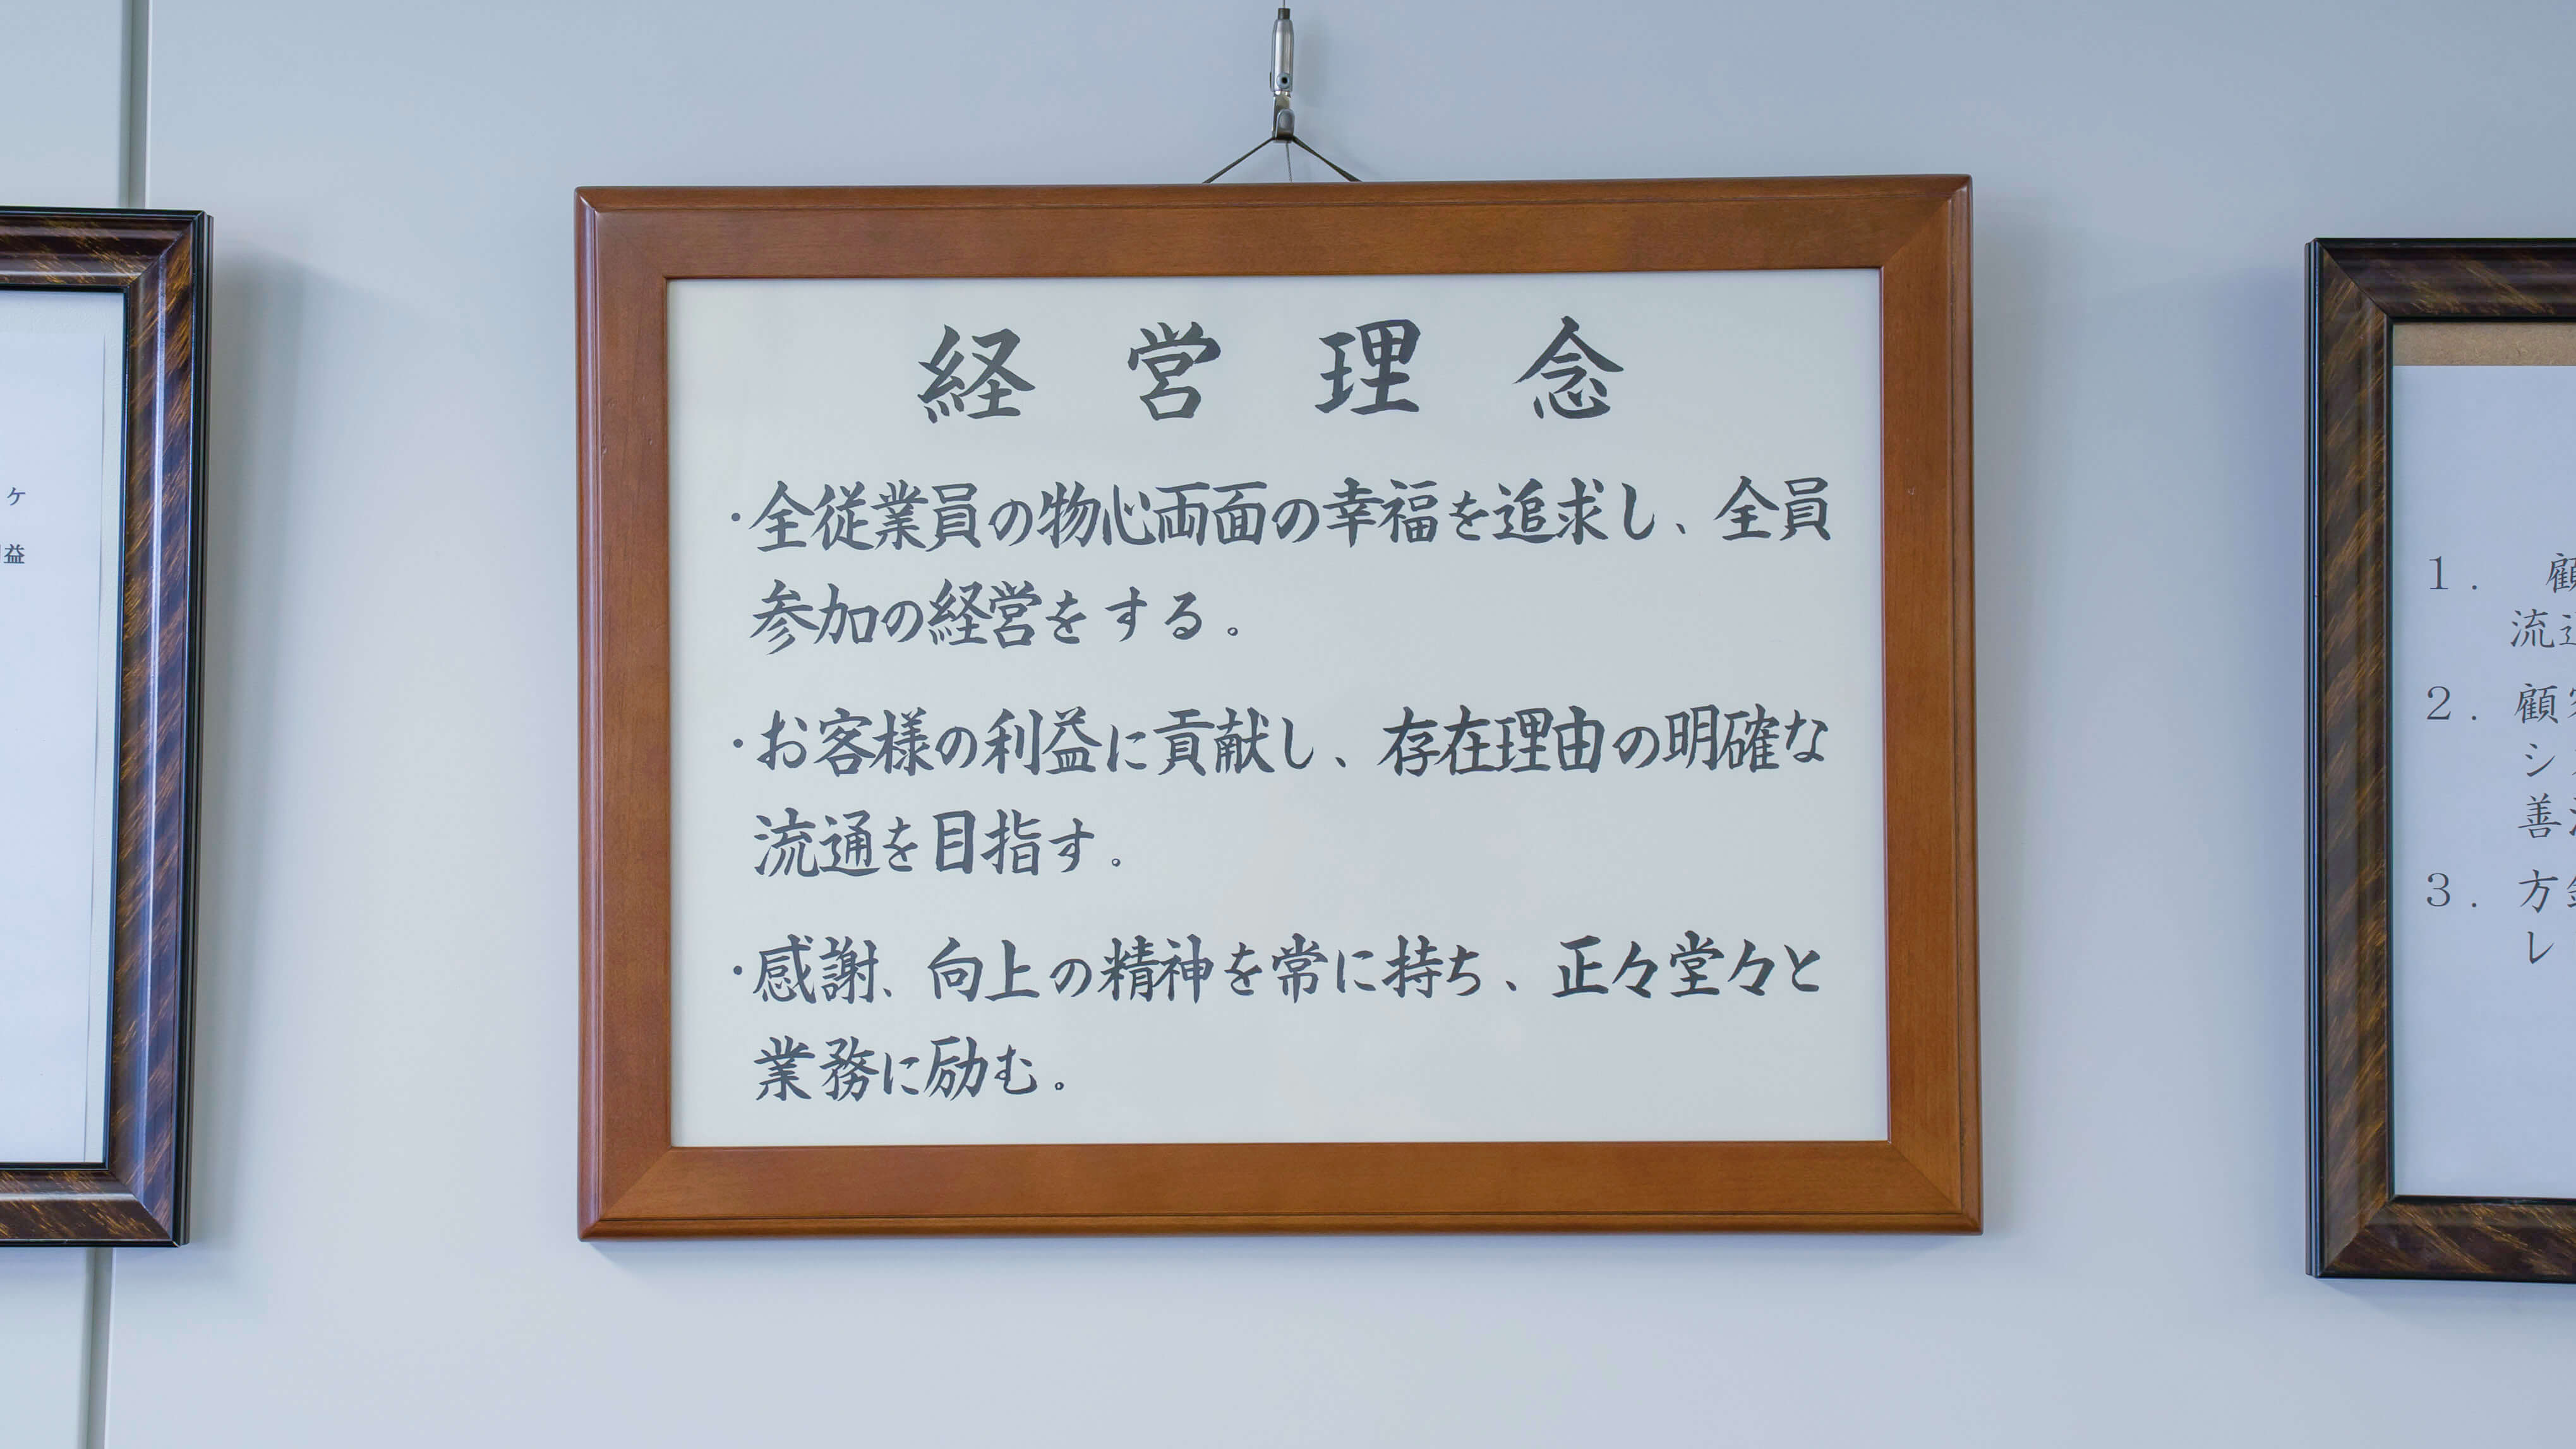 経営理念
・全従業員の物心両面の幸福を追求し、全員
参加の経営をする。
・お客様の利益に貢献し、存在理由の明確な
流通を目指す。
・感謝、向上の精神を常に持ち、正々堂々と
業務に励む。
ケ
益
1. 顧
流通
2. 顧客
シ
善
3. 方
レ